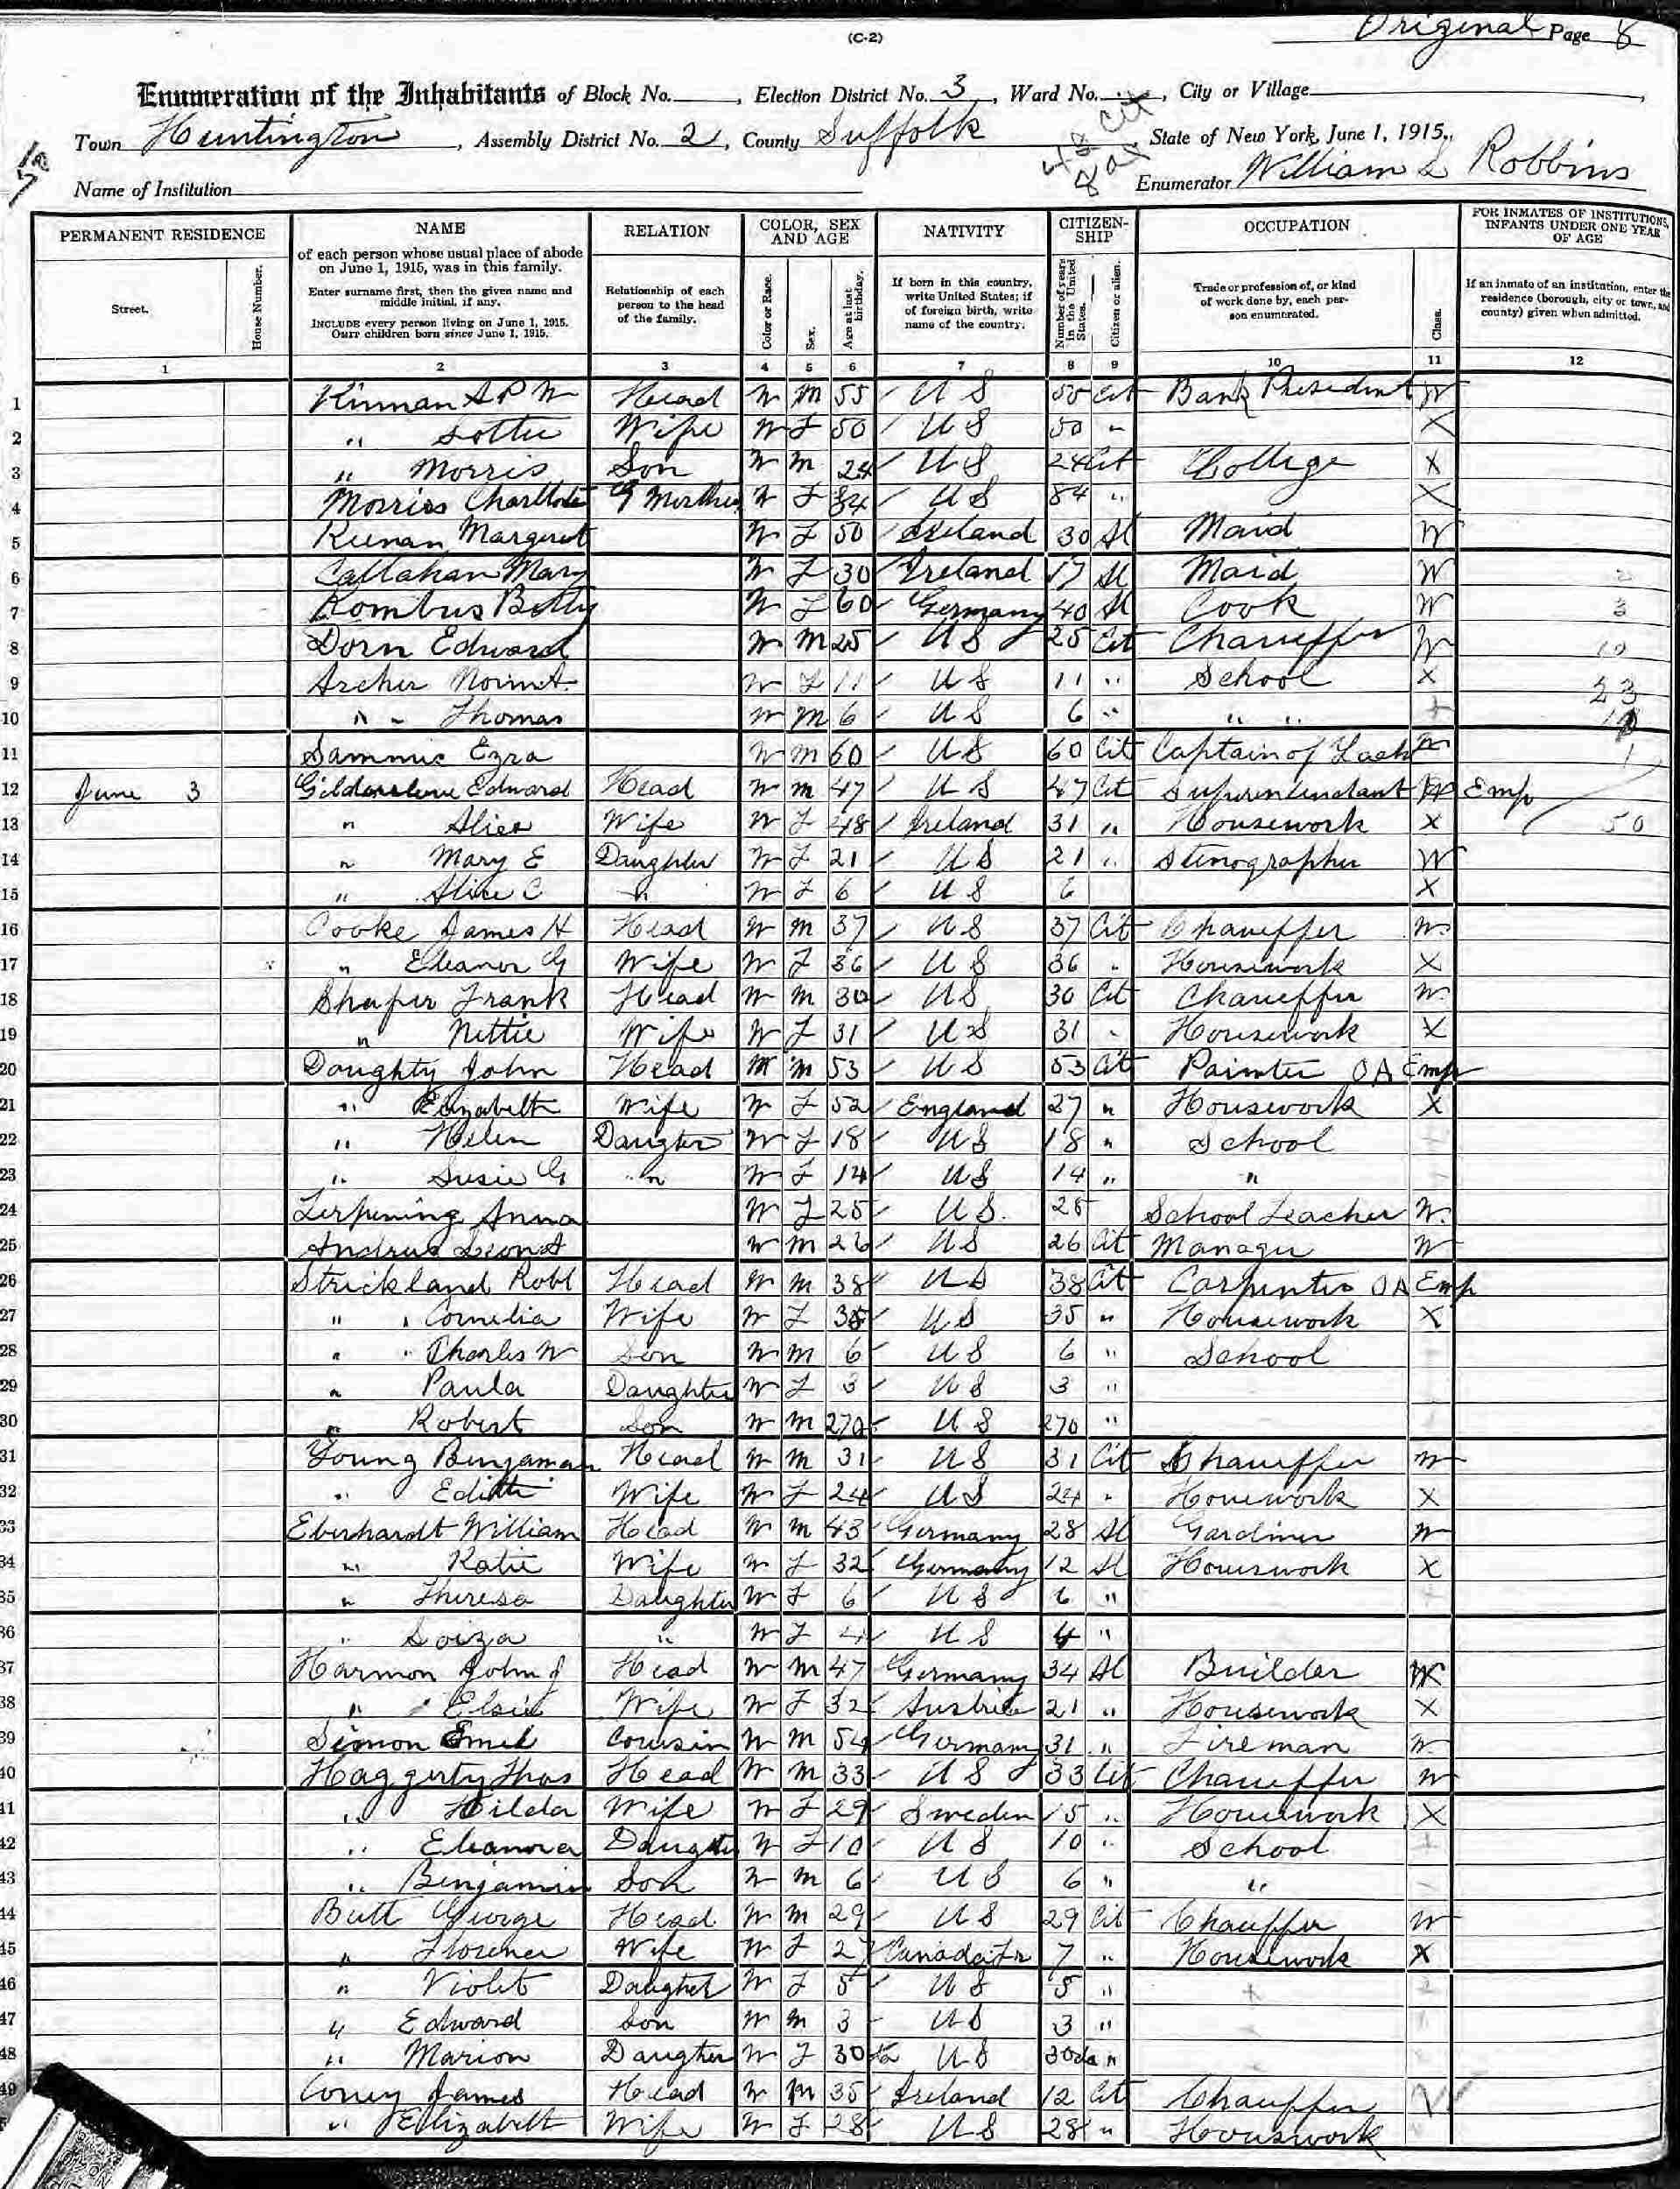 (C-2)
Original Page 8
Enumeration of the Inhabitants of Block No. , Election District No. 3 , Ward No. , City or Village ,
Town Huntington , Assembly District No. 2 , County Suffolk , State of New York, June 1, 1915.
48 Cit
8 al
Name of Institution Enumerator William L Robbins
PERMANENT RESIDENCE
Street.
House Number.
NAME
of each person whose usual place of abode on June 1, 1915, was in this family.
Enter surname first, then the given name and middle initial, if any.
INCLUDE every person living on June 1, 1915. OMIT children born since June 1, 1915.
RELATION
Relationship of each person to the head of the family.
COLOR, SEX AND AGE
Color or Race.
Sex.
Age at last birthday.
NATIVITY
If born in this country, write United States; if of foreign birth, write name of the country.
CITIZEN-SHIP
Number of years in the United States.
Citizen or alien.
OCCUPATION
Trade or profession of, or kind of work done by, each person enumerated.
Class.
FOR INMATES OF INSTITUTIONS, INFANTS UNDER ONE YEAR OF AGE
If an inmate of an institution, enter the residence (borough, city or town, and county) given when admitted.
1 2 3 4 5 6 7 8 9 10 11 12
1 Kinman A P W Head W M 55 U S 50 Cit Bank President W
2 " Lottie Wife W F 50 U S 50 " X
3 " Morris Son W M 24 U S 24 Cit College X
4 Morriss Charllote G Morther W F 84 U S 84 " X
5 Keenan Margeret W F 50 Ireland 30 Al Maid W
6 Callahan Mary W F 30 Ireland 17 Al Maid W
7 Rombus Betty W F 60 Germany 40 Al Cook W 3
8 Dorn Edward W M 25 U S 25 Cit Chaueffer W 10
9 Archer W F 11 U S 11 " School X 23
10 " " Thomas W M 6 U S 6 " " "
11 Sammis Ezra W M 60 U S 60 Cit Captain of W 1
12 June 3 Gildersleeve Edward Head W M 47 U S 47 Cit Superintendant Emp
13 " Alice Wife W F 48 Ireland 31 " Housework X 50
14 " Mary E Daughter W F 21 U S 21 " Stenographer W
15 " Alice C " W F 6 U S 6 X
16 Cooke James H Head W M 37 U S 37 Cit Chaueffer W
17 " Eleanor G Wife W F 36 U S 36 " Housework X
18 Shafer Frank Head W M 30 U S 30 Cit Chaueffer W
19 " Nettie Wife W F 31 U S 31 " Housework X
20 Doughty John Head W M 53 U S 53 Cit Painter O A Emp
21 " Elizabeth Wife W F 52 England 27 " Housework X
22 " Helen Daugter W F 18 U S 18 " School
23 " Susie G " W F 14 U S 14 " "
24 Terpening Anna W F 25 U S. 25 School Teacher W
25 Andrus Leon A W M 26 U S 26 Cit Manager W
26 Strickland Robt Head W M 38 U S 38 Cit Carpenter O A Emp
27 " Cornelia Wife W F 35 U S 35 " Housework X
28 " Charles W Son W M 6 U S 6 " School
29 " Paula Daughter W F 3 U S 3 "
30 " Robert Son W M 27da U S 27d "
31 Young Benjaman Head W M 31 U S 31 Cit Chaueffer W
32 " Edith Wife W F 24 U S 24 " Housework X
33 Eberhardt William Head W M 43 Germany 28 Al Gardiner W
34 " Katie Wife W F 32 Germany 12 Al Housework X
35 " Theresa Daughter W F 6 U S 6 "
36 " Soiza " W F 4 U S 4 "
37 Harmon John J Head W M 47 Germany 34 Al Builder W
38 " Elsie Wife W F 32 Austria 21 " Housework X
39 Simon Emil Cousin W M 54 Germany 31 " Fireman W
40 Haggerty Thos Head W M 33 U S 33 Cit Chaueffer W
41 " Hilda Wife W F 29 Sweden 15 " Housework X
42 " Eleanora Daugter W F 10 U S 10 " School
43 " Benjamin Son W M 6 U S 6 " "
44 Butt George Head W M 29 U S 29 Cit Chauffer W
45 " Florence Wife W F 27 Canada Fr 7 " Housework X
46 " Violet Daughter W F 5 U S 5 "
47 " Edward Son W M 3 U S 3 "
48 " Marion Daugther W F 30da U S 30da "
49 Corey James Head W M 35 Ireland 12 Cit Chauffer W
" Elizabeth Wife W F 28 U S 28 " Houswork